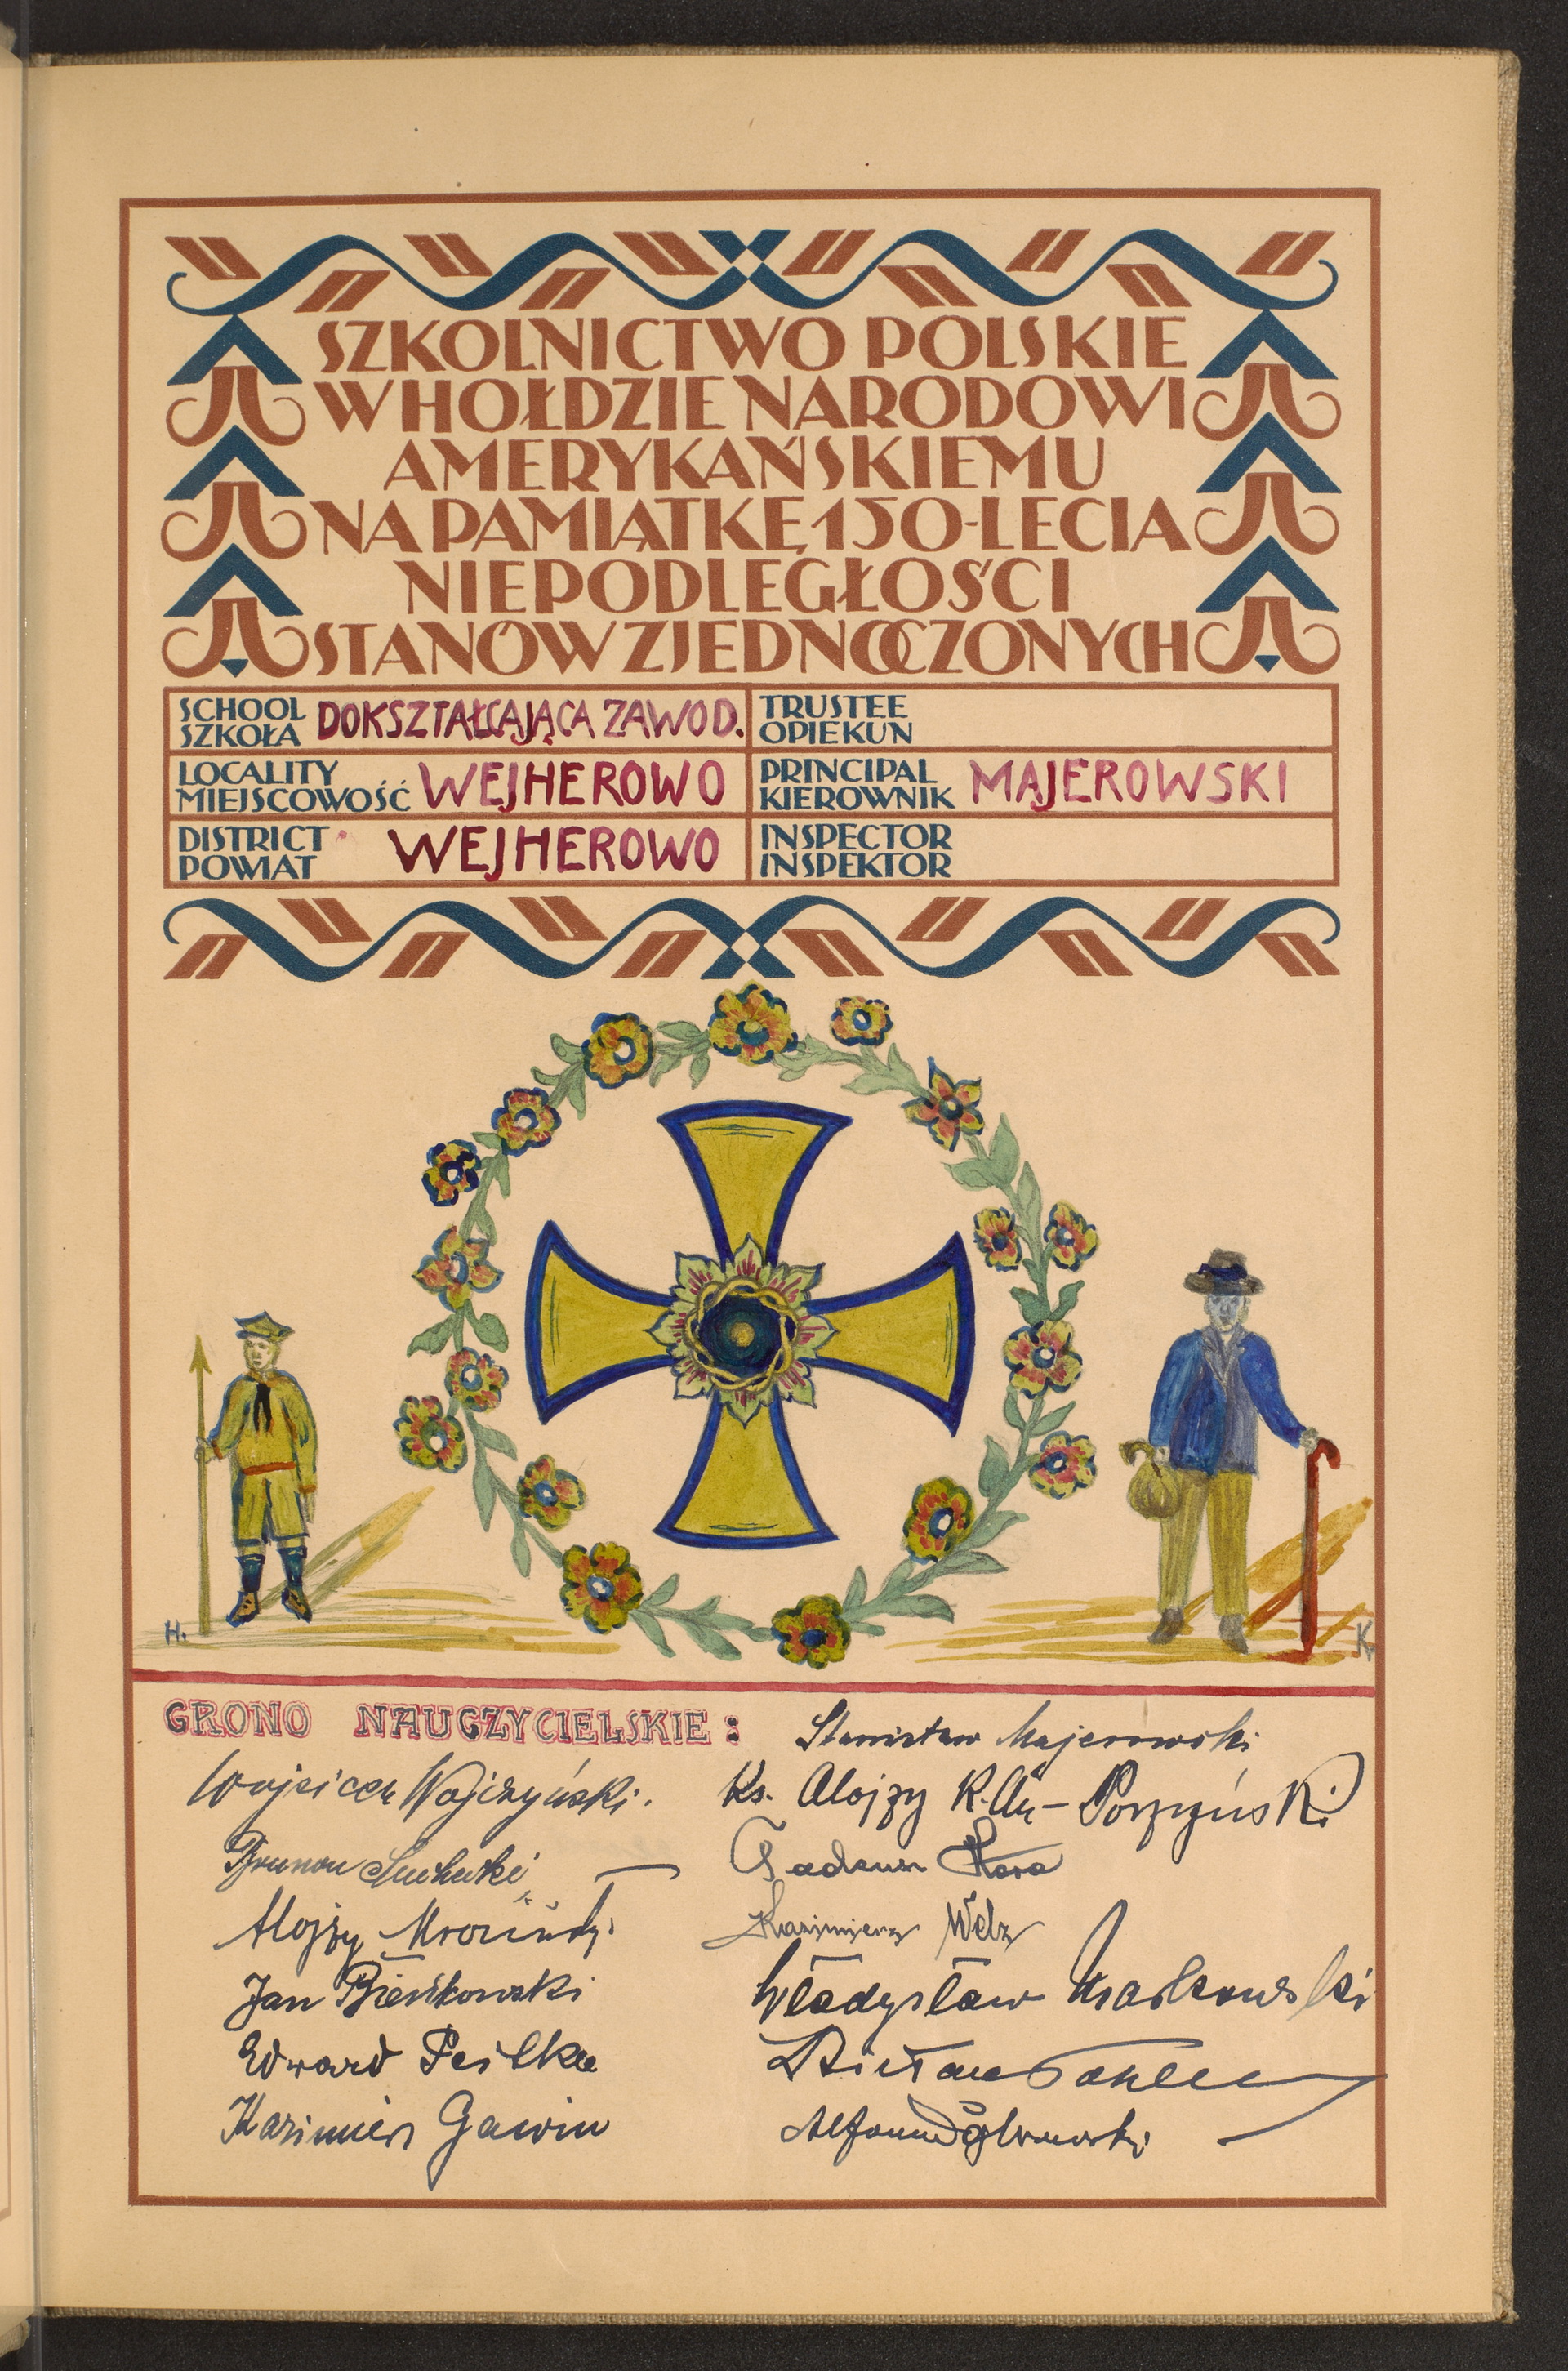 SZKOLNICTWO POLSKIE
W HOŁDZIE NARODOWI
AMERYKAŃSKIEMU
NA PAMIĄTKĘ 150-LECIA
NIEPODLEGŁOŚCI
STANÓW ZJEDNOCZONYCH
SCHOOL
SZKOŁA DOKSZTAŁCAJĄCA ZAWOD.
TRUSTEE
OPIEKUN
LOCALITY
MIEJSCOWOŚĆ WEJHEROWO
PRINCIPAL
KIEROWNIK MAJEROWSKI
DISTRICT
POWIAT WEJHEROWO
INSPECTOR
INSPEKTOR
H.
K.
GRONO NAUCZYCIELSKIE:
Stanisław Majerowski
Wojciech
Ks. Alojzy
Brunon
Tadeusz
Alojzy
Kazimierz Welz
Jan Bieńkowski
Władysław
Edward
Kazimierz Gawin
Alfons